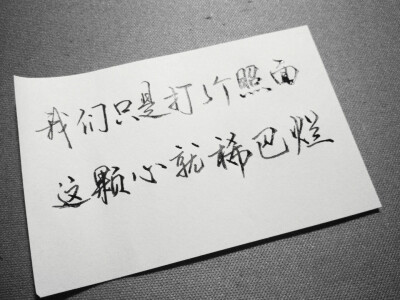 我们只是打个照面
这颗心就稀巴烂